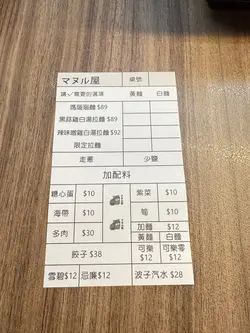 マヌル屋 桌號
請✓需要的選項 黃麵 白麵
瑪瑙拉麵 $89
黑蒜雞白湯拉麵 $89
辣味噌雞白湯拉麵 $92
限定拉麵
走蔥 少鹽
加配料
糖心蛋 $10 紫菜 $10
海帶 $10 筍 $10
多肉 $30 加麵 $12
黃麵 白麵
餃子 $38 可樂 $12 可樂零 $12
雪碧 $12 忌廉 $12 波子汽水 $28